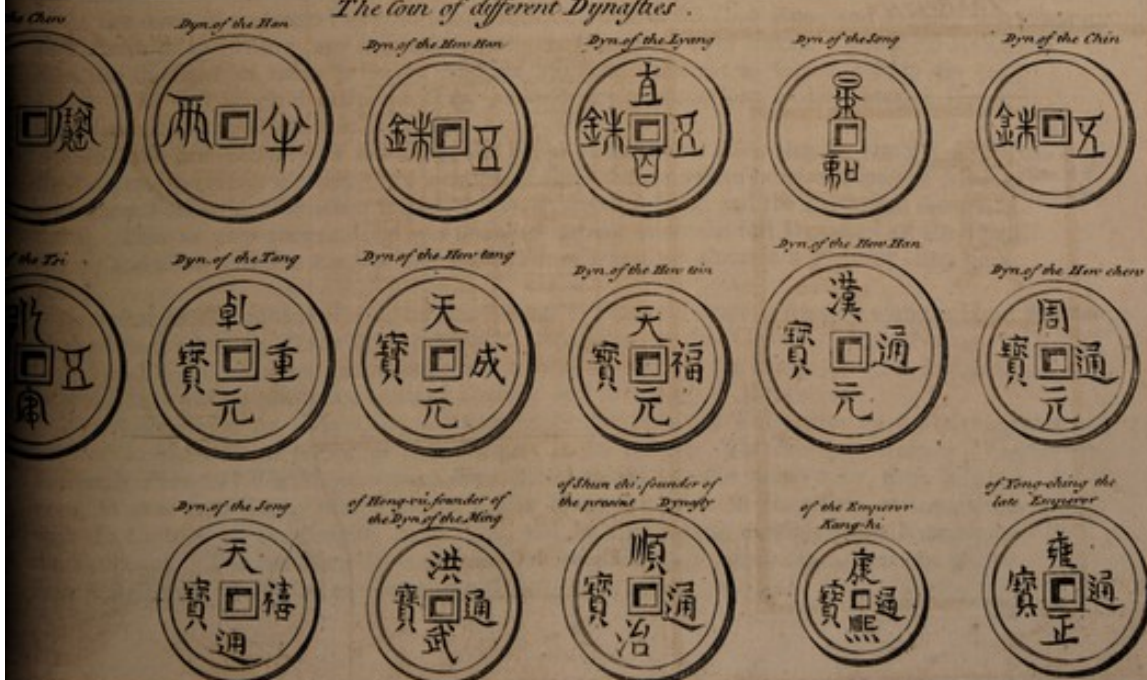 The Coin of different Dynasties.
the Chew
寶
Dyn. of the Han
兩 半
Dyn. of the How Han
銖 五
Dyn. of the Lyang
直
銖 五
百
Dyn. of the Song
景
和
Dyn. of the Chin
銖 五
the Tsi
五
Dyn. of the Tang
乹
寶 重
元
Dyn. of the How tang
天
寶 成
元
Dyn. of the How tsin
天
寶 福
元
Dyn. of the How Han
漢
寶 通
元
Dyn. of the How chew
周
寶 通
元
Dyn. of the Song
天
寶 禧
通
of Hong-vû, founder of
the Dyn. of the Ming
洪
寶 通
武
of Shun chi, founder of
the present Dynasty
順
寶 通
治
of the Emperor
Kang-hi
康
寶 通
熙
of Yong-ching the
late Emperor
雍
寶 通
正